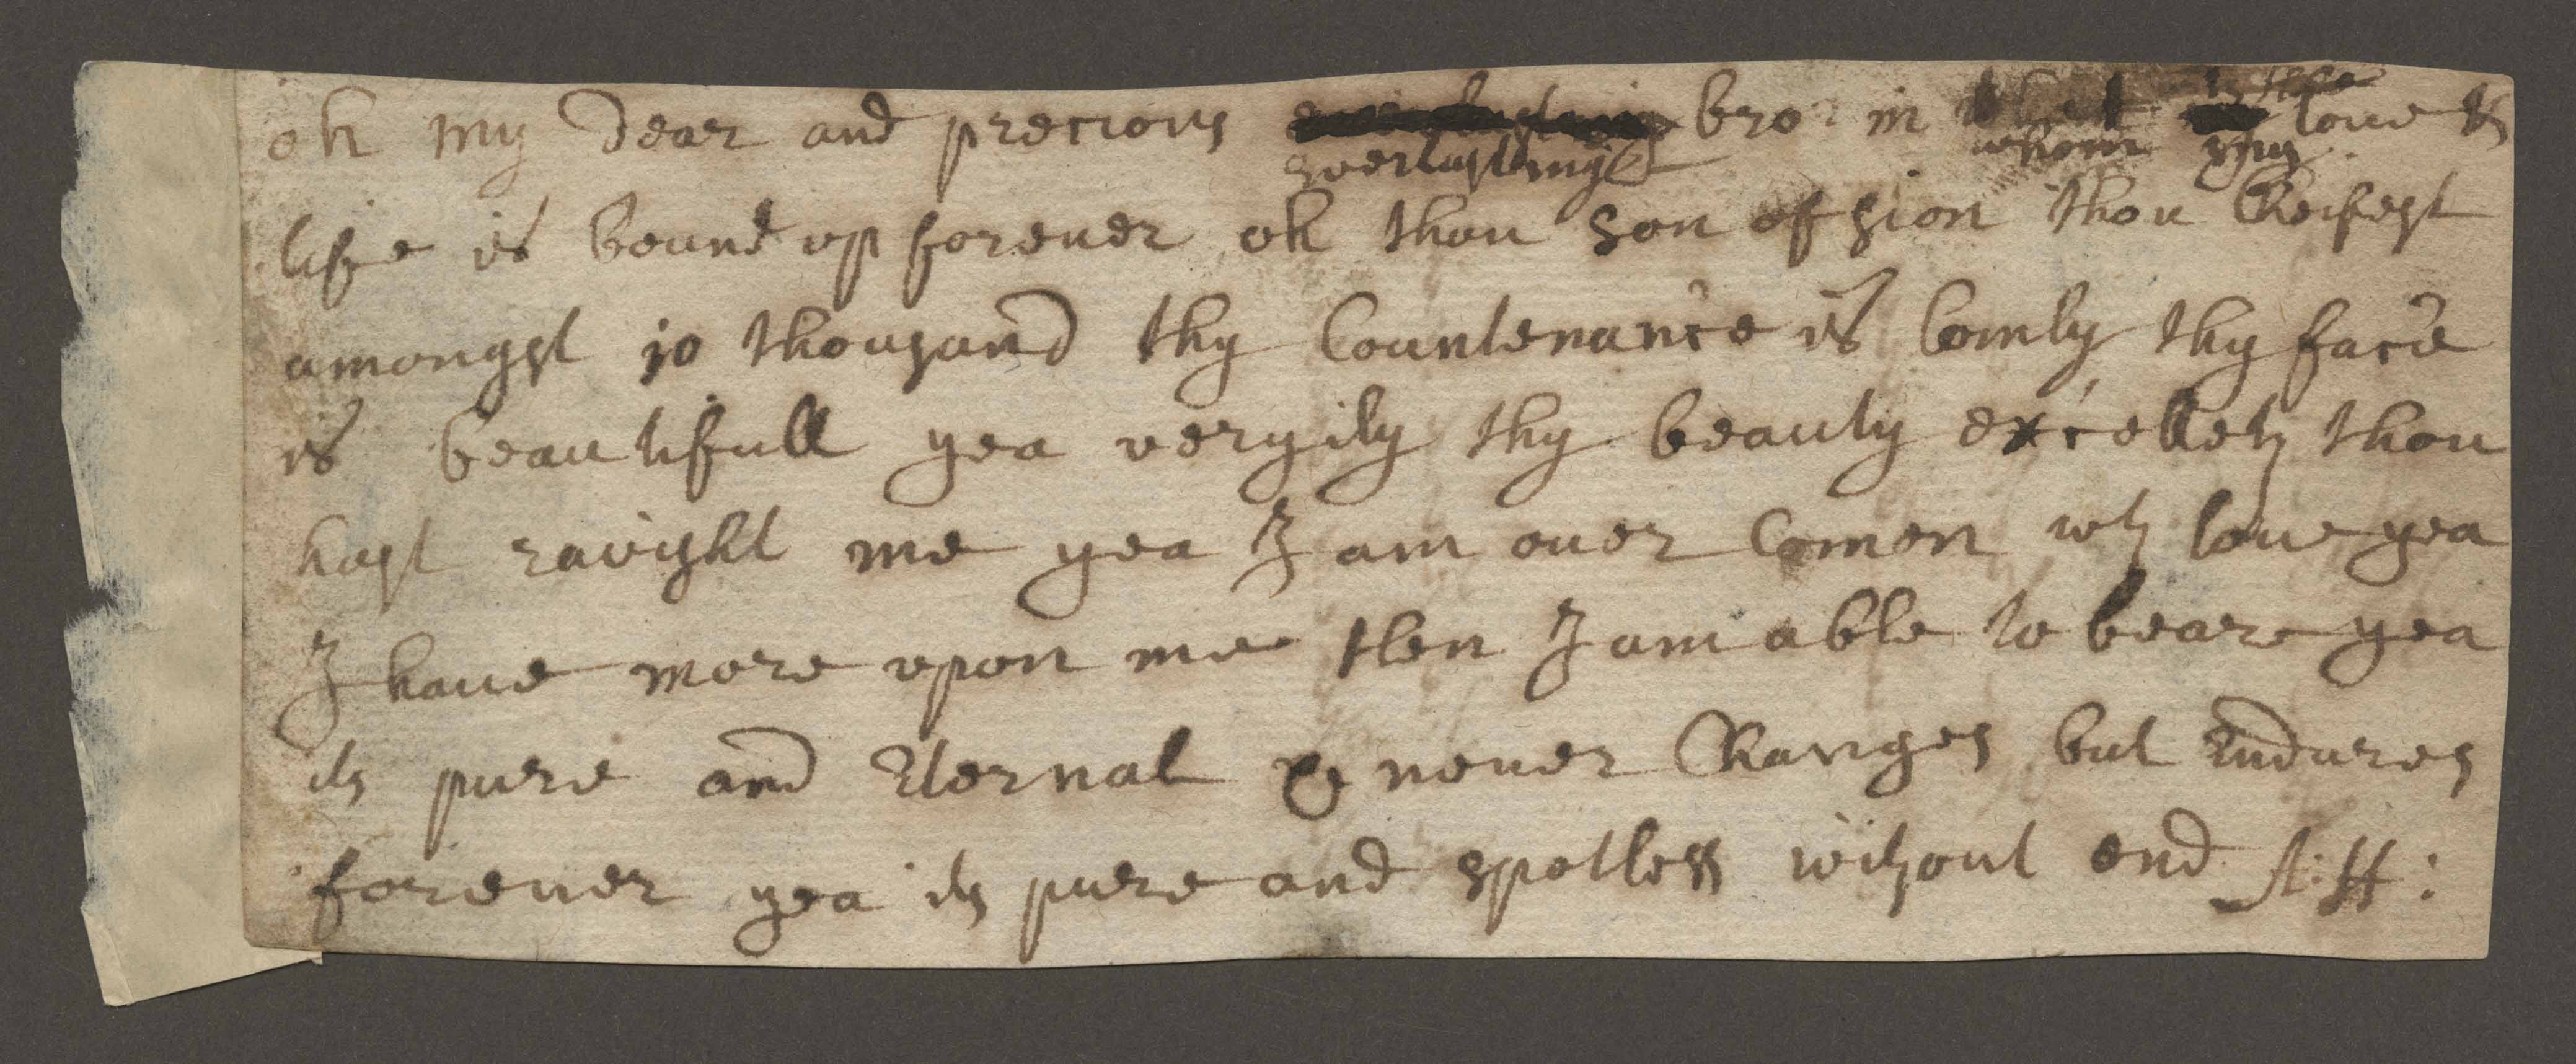 oh my dear and precious bro: in loue &
everlasting whom
life is bound vp foreuer oh thou son of sion thou Cheifest
amongst 10 thousand thy Countenance is Comly thy face
is beautifull yea veryily thy beauty excelleth thou
hast ravisht me yea I am ouer Comen wth loue yea
I haue more vpon me then I am able to beare yea
its pure and Eternal & neuer Changes but Endures
foreuer yea its pure and spotless without end A: H: